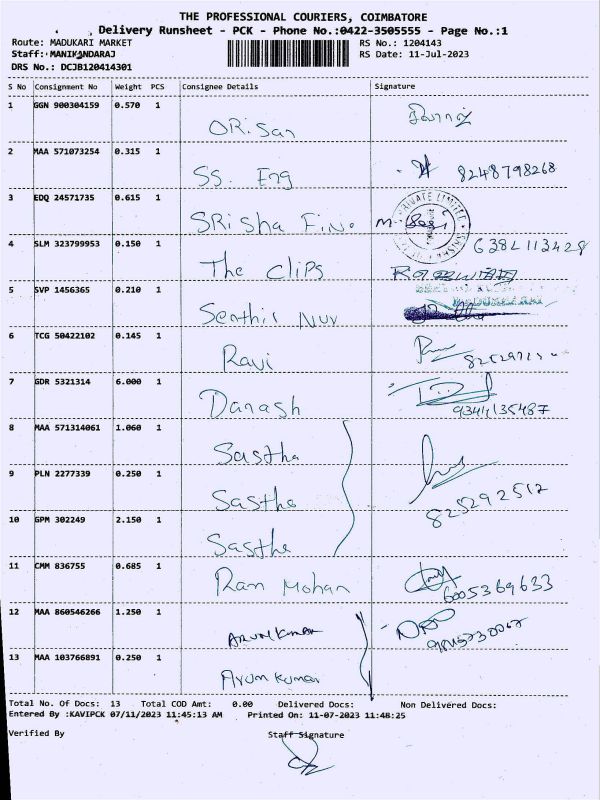 THE PROFESSIONAL COURIERS, COIMBATORE
Delivery Runsheet - PCK - Phone No.:0422-3505555 - Page No.:1
Route: MADUKARI MARKET RS No.: 1204143
Staff: MANIKANDARAJ RS Date: 11-Jul-2023
DRS No.: DCJB120414301
S No Consignment No Weight PCS Consignee Details Signature
1 GGN 900304159 0.570 1 ORisan
2 MAA 571073254 0.315 1 SS. Eng 8248798268
3 EDQ 24571735 0.615 1 SRisha Fine
4 SLM 323799953 0.150 1 The Clips
5 SVP 1456365 0.210 1 Senthil
6 TCG 50422102 0.145 1 Ravi
7 GDR 5321314 6.000 1 Danash
8 MAA 571314061 1.060 1 Sastha
9 PLN 2277339 0.250 1 Sastha
10 GPM 302249 2.150 1 Sastha
11 CMM 836755 0.685 1 Ram Mohan 6005369633
12 MAA 860546266 1.250 1 Arunkumar
13 MAA 103766891 0.250 1 Arunkumar
Total No. Of Docs: 13 Total COD Amt: 0.00 Delivered Docs: Non Delivered Docs:
Entered By :KAVIPCK 07/11/2023 11:45:13 AM Printed On: 11-07-2023 11:48:25
Verified By Staff Signature